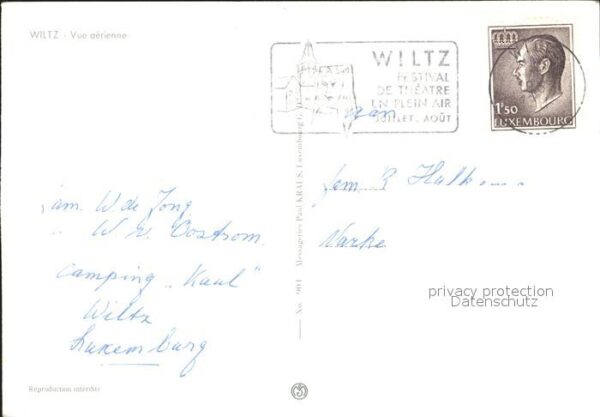 WILTZ - Vue aérienne
WILTZ
FESTIVAL
DE THÉATRE
EN PLEIN AIR
JUILLET - AOÛT
1F50
LUXEMBOURG
aan
fam.
Varke
fam. W. de Jong
" W. v. Oostrom.
Camping „Kaul"
Wiltz
Luxemburg
No. 901 Messageries Paul KRAUS, Luxembourg G.
privacy protection
Datenschutz
Reproduction interdite